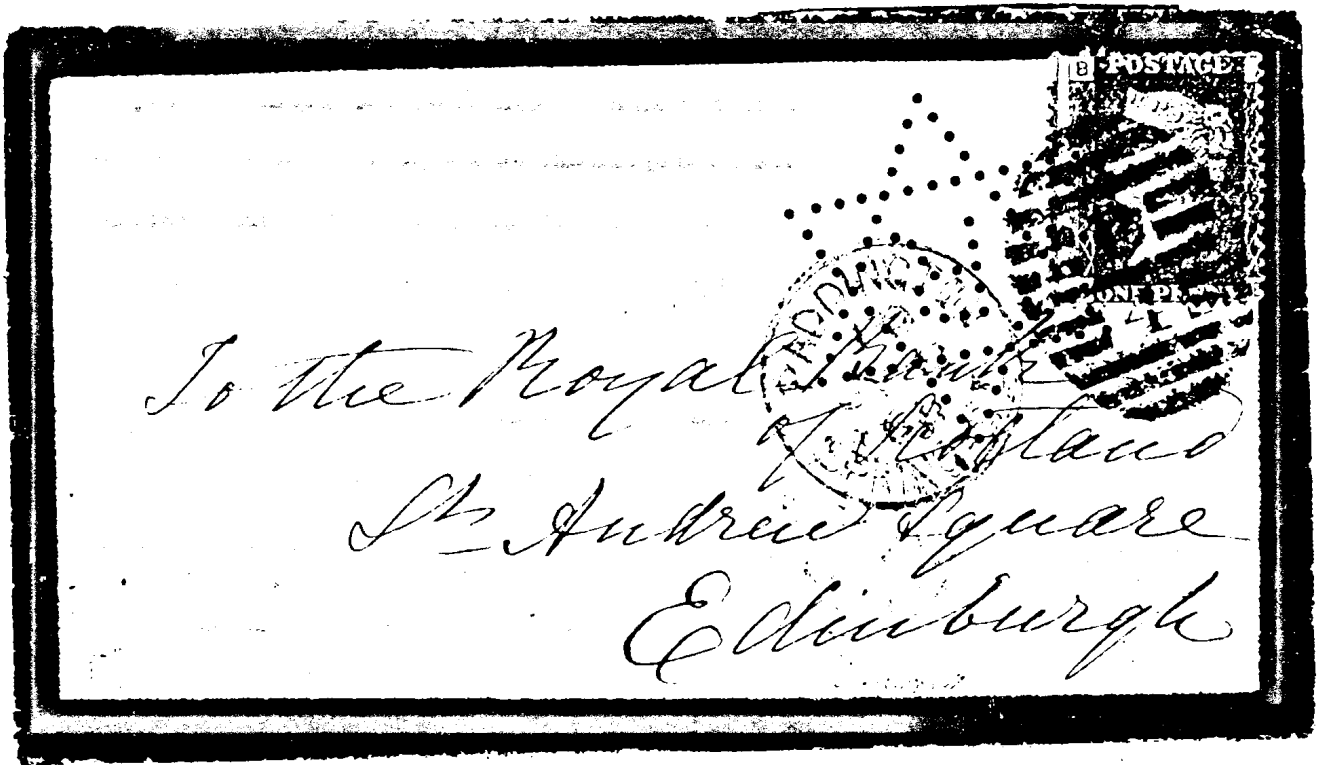 B POSTAGE
ONE PENNY
To the Royal Bank
of Scotland
St Andrew Square
Edinburgh